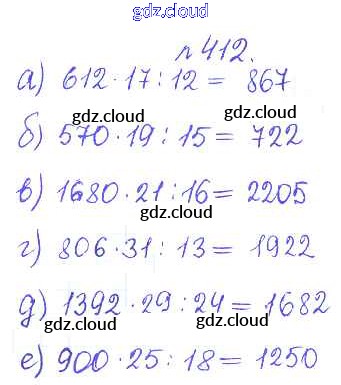 gdz.cloud
№412.
а) 612·17:12 = 867
gdz.cloud gdz.cloud
б) 570·19:15 = 722
в) 1680·21:16 = 2205
gdz.cloud
г) 806·31:13 = 1922
gdz.cloud gdz.cloud
д) 1392·29:24 = 1682
gdz.cloud gdz.cloud
е) 900·25:18 = 1250